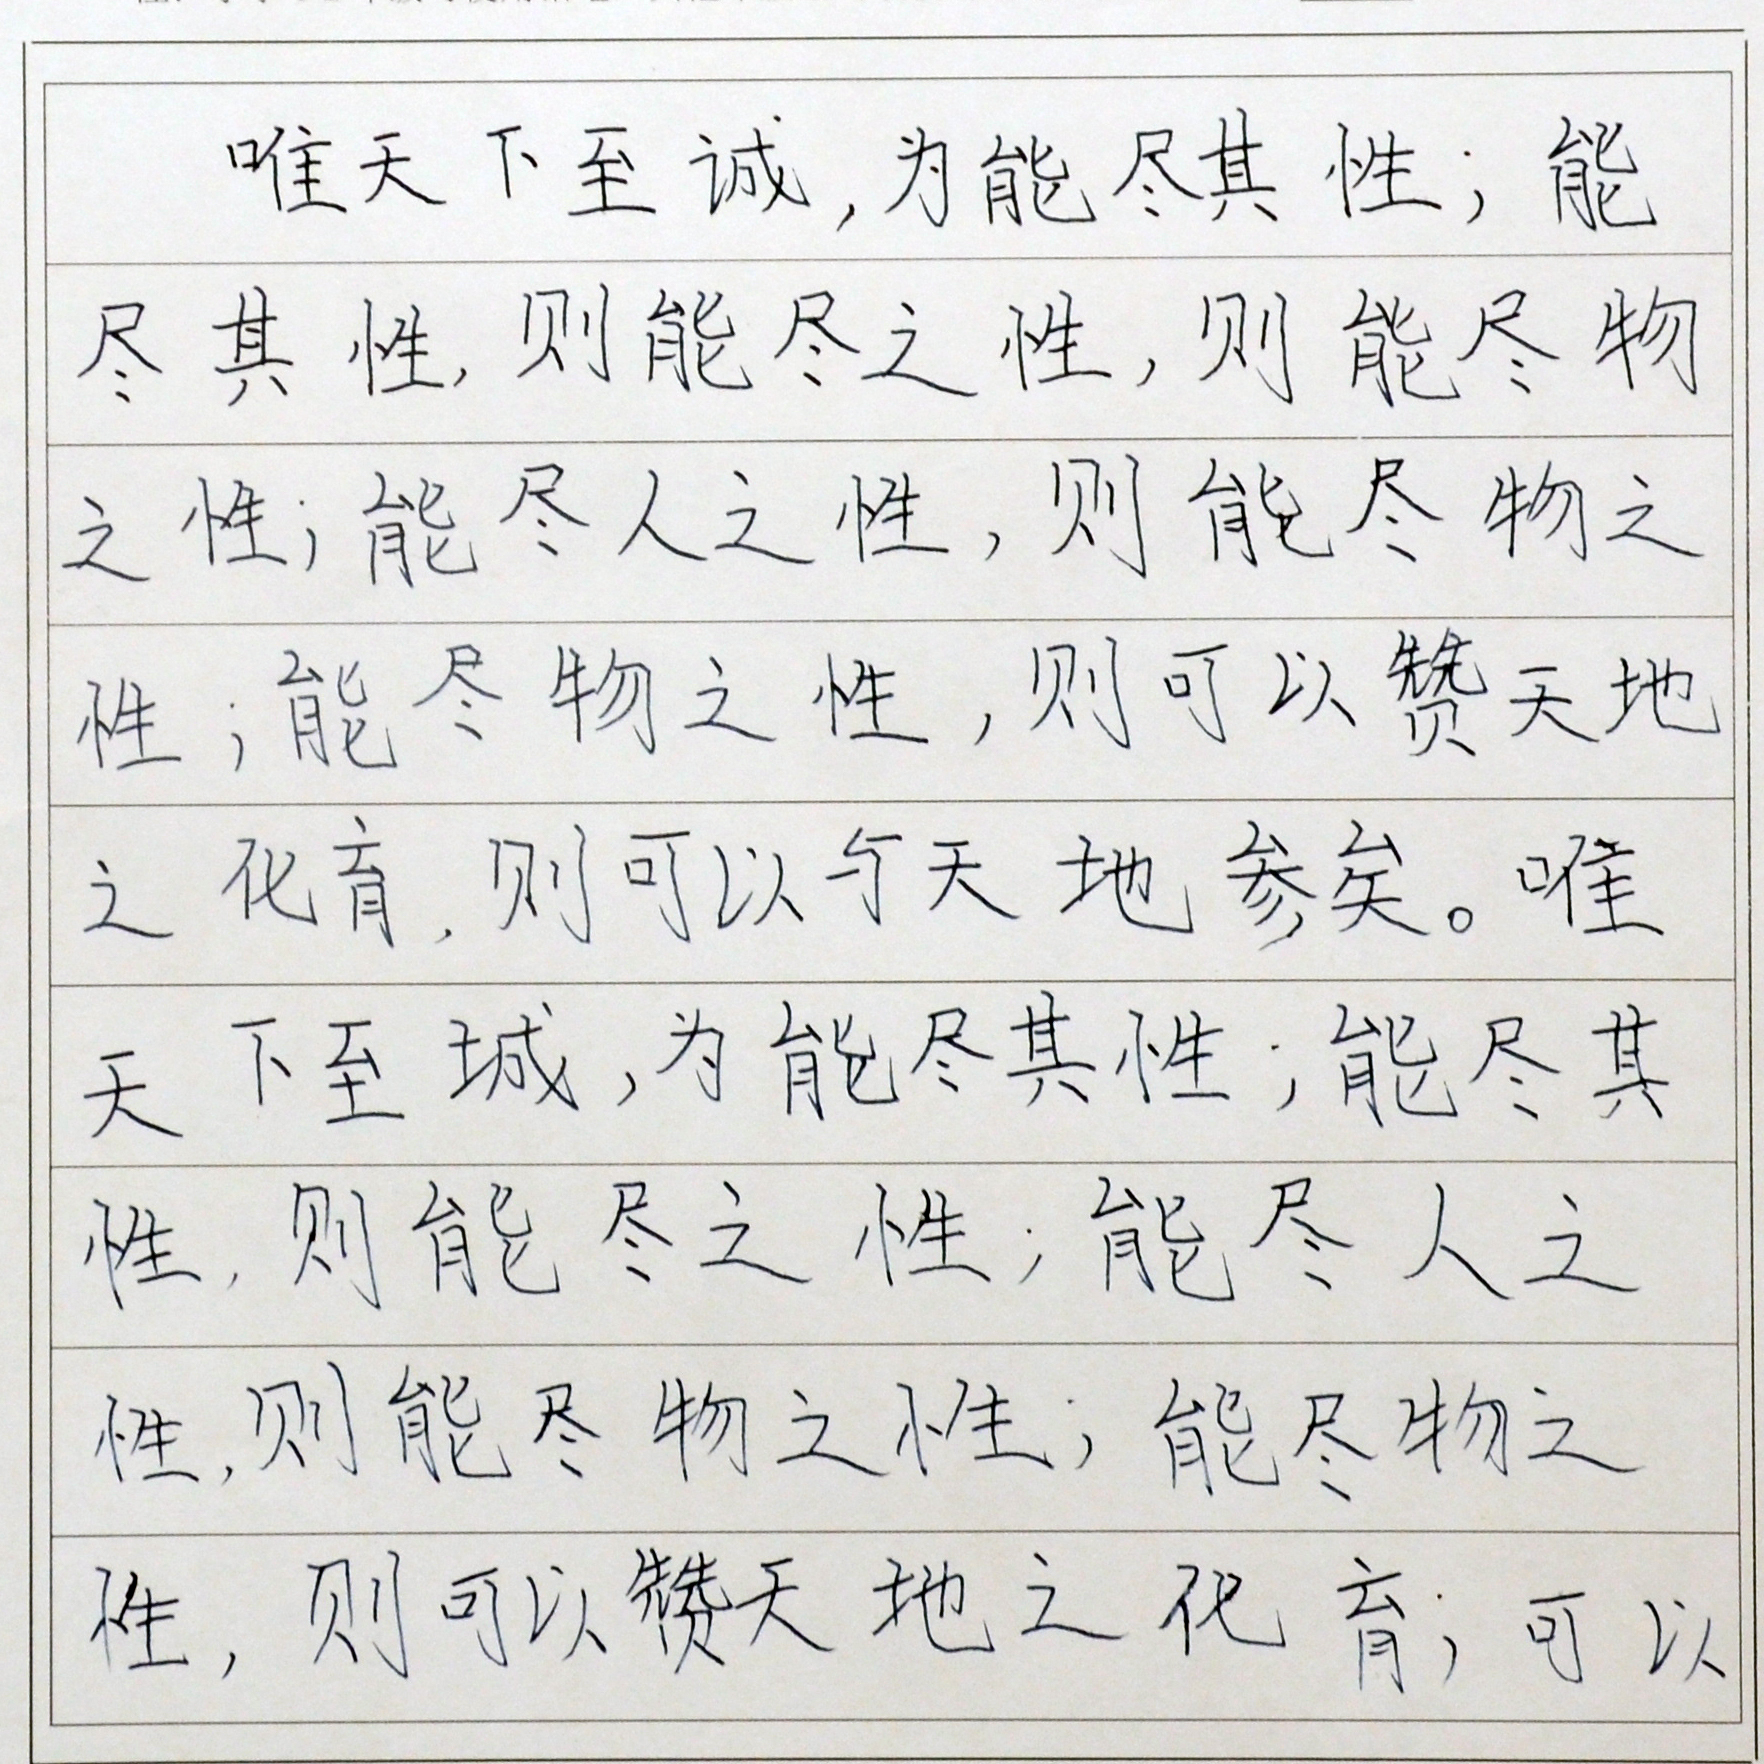 唯天下至诚,为能尽其性;能
尽其性,则能尽之性,则能尽物
之性;能尽人之性,则能尽物之
性;能尽物之性,则可以赞天地
之化育,则可以与天地参矣。唯
天下至城,为能尽其性;能尽其
性,则能尽之性;能尽人之
性,则能尽物之性;能尽物之
性,则可以赞天地之化育;可以